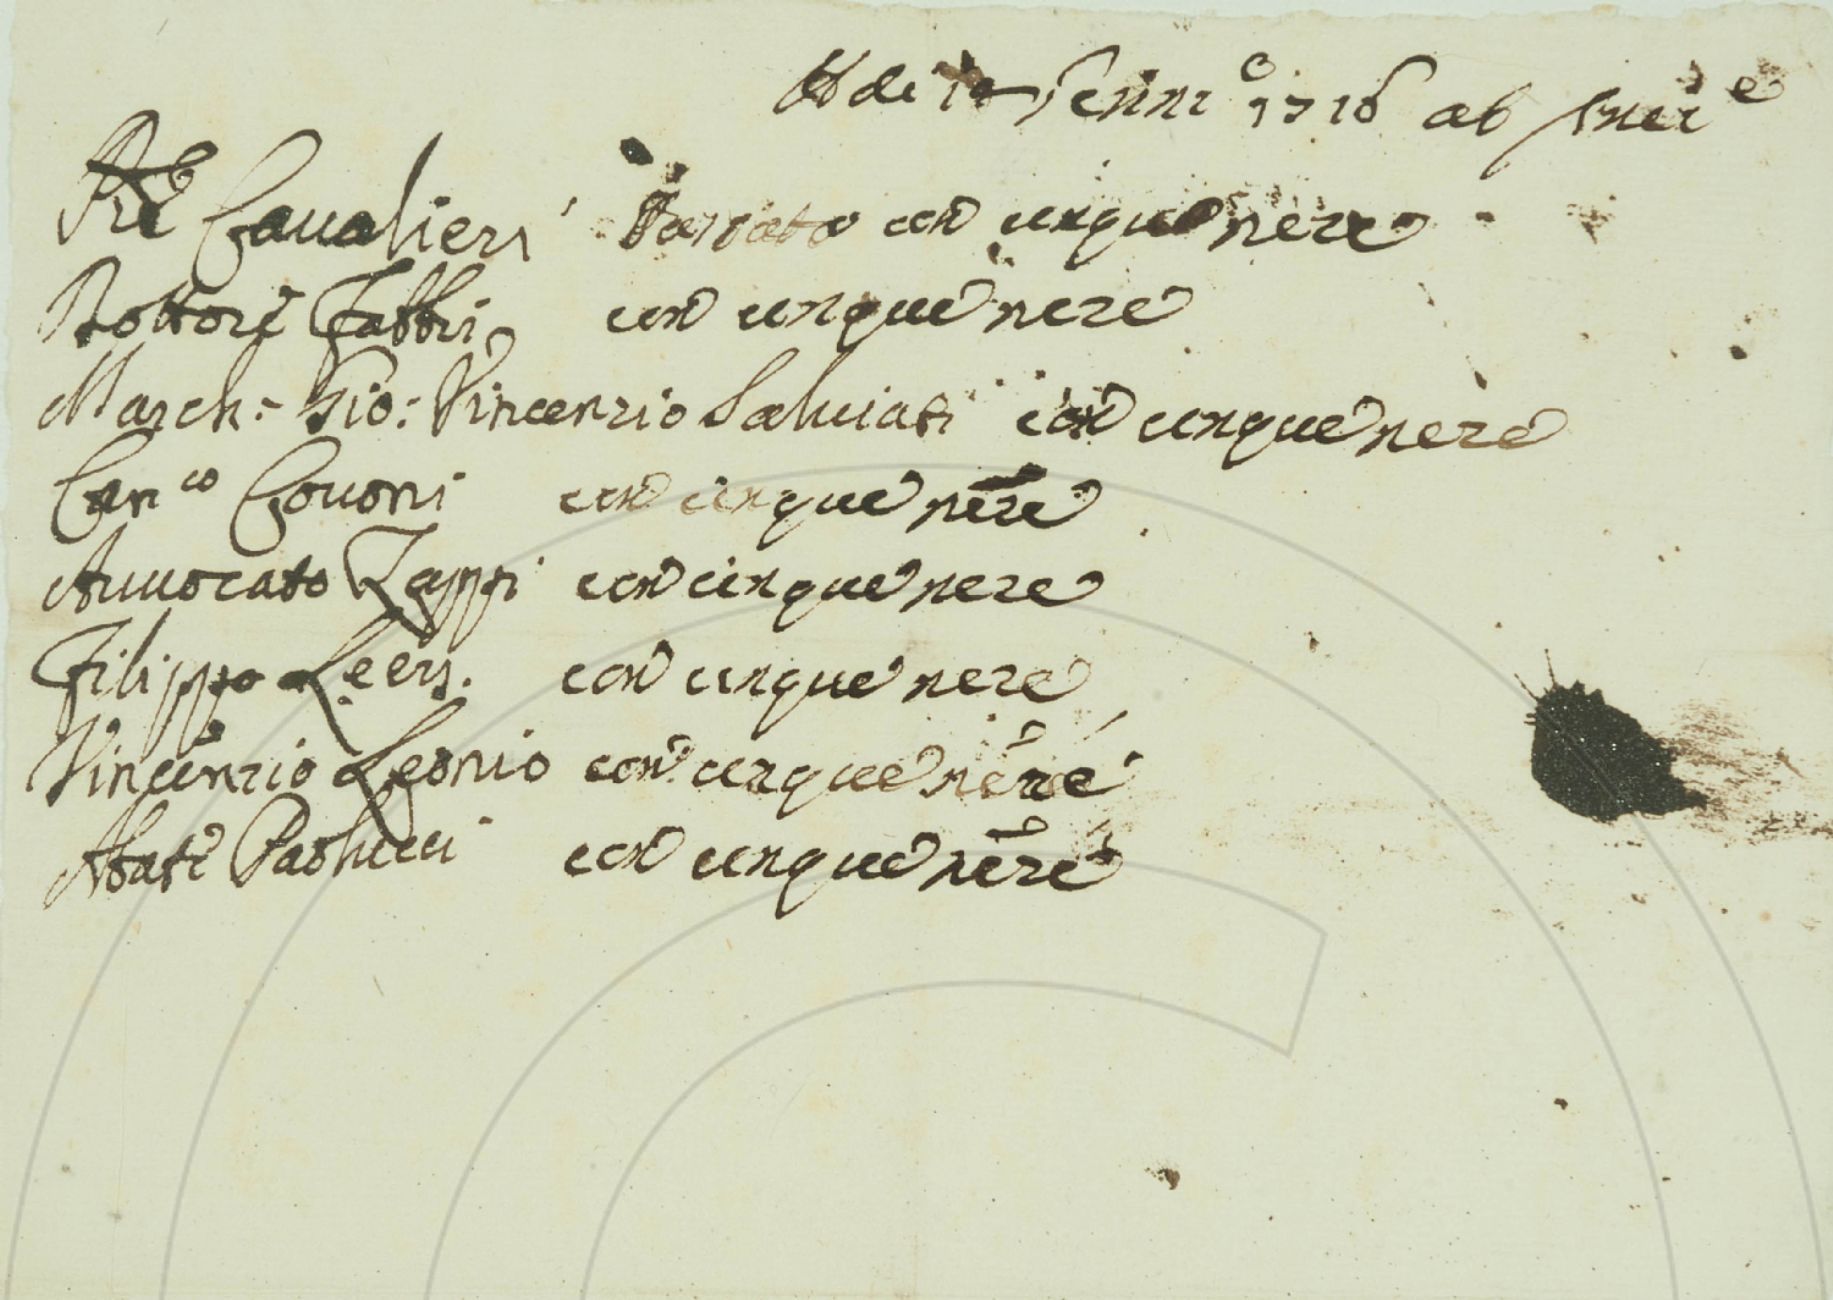 Adi 10 Genn.º 1716 ab Inc.e
Cavalieri Passato con cinque nere
Dottore Fabbri con cinque nere
March: Gio: Vincenzio Salviati con cinque nere
Can.co Covoni con cinque nere
Avvocato Zappi con cinque nere
Filippo Leers. con cinque nere
Vincenzio Leonio con cinque nere
Abate Paolucci con cinque nere